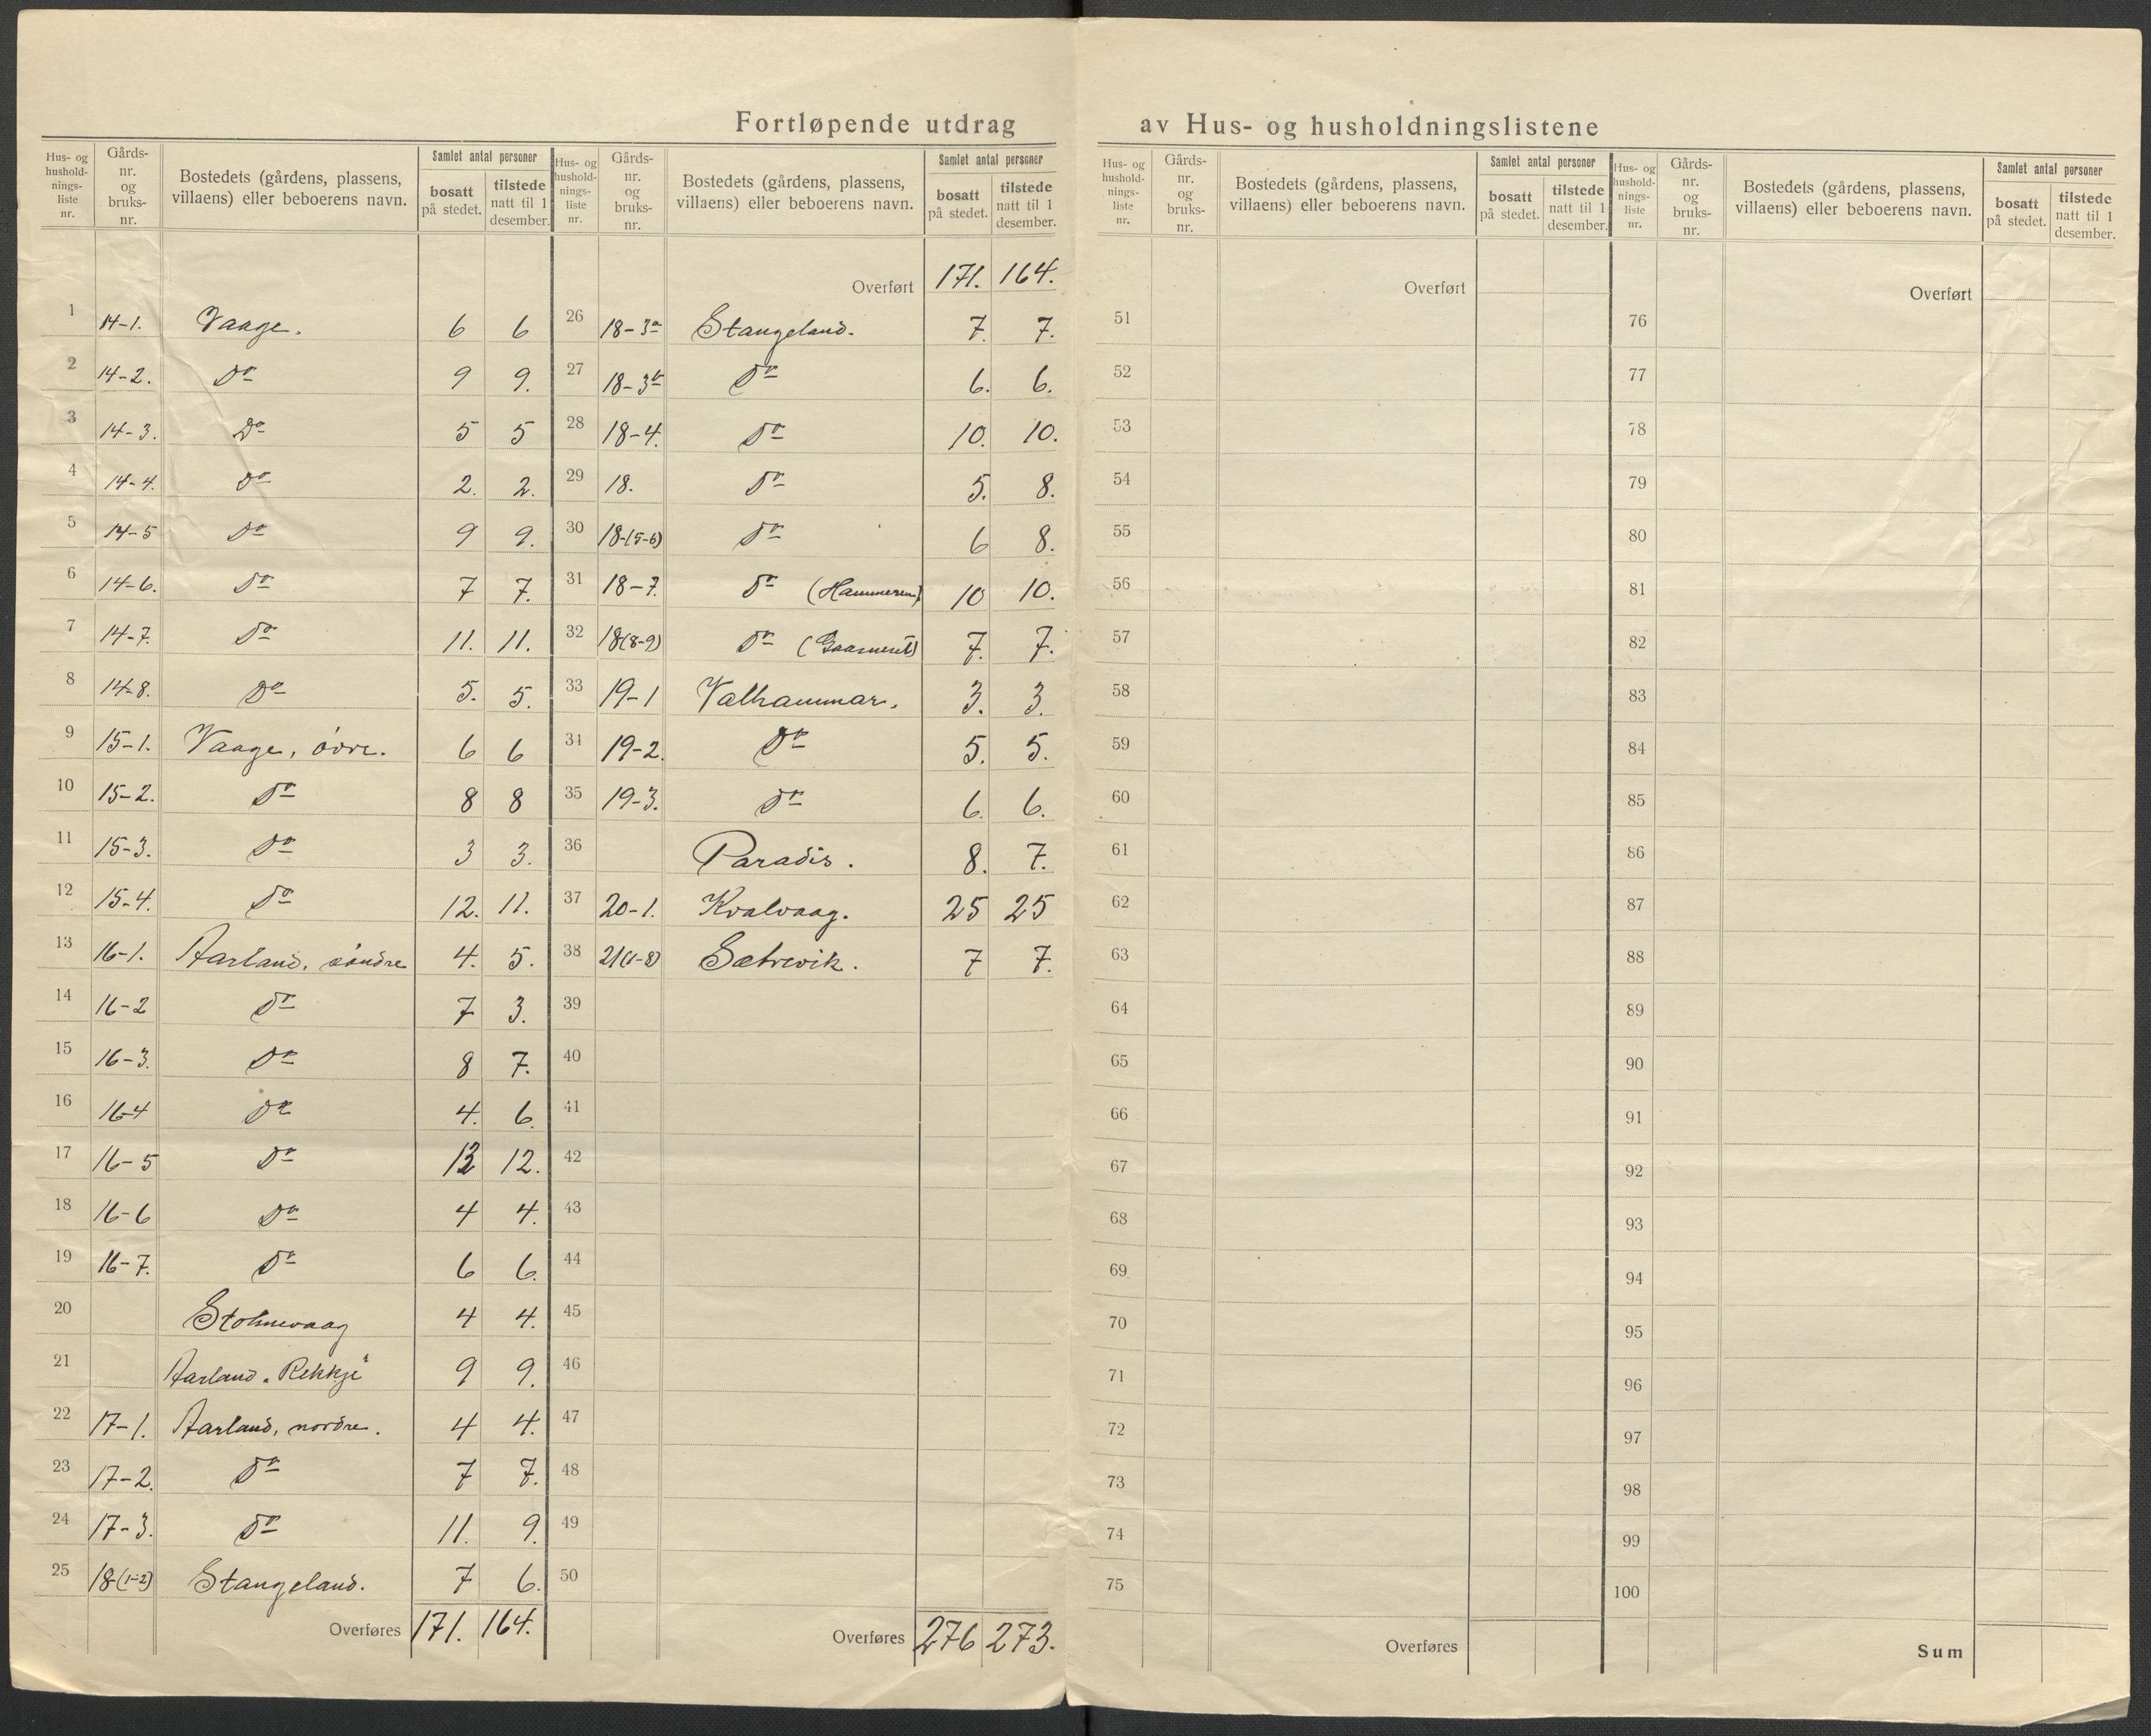 Fortløpende utdrag av Hus- og husholdningslistene
Hus- og husholdnings-liste nr. Gårds-nr. og bruks-nr. Bostedets (gårdens, plassens, villaens) eller beboerens navn. Samlet antal personer bosatt på stedet. tilstede natt til 1 desember.
1 14-1. Vaage. 6 6
2 14-2. Do 9 9.
3 14-3. Do 5 5
4 14-4. Do 2. 2.
5 14-5 Do 9 9.
6 14-6. Do 7 7.
7 14-7. Do 11. 11.
8 14-8. Do 5. 5.
9 15-1. Vaage, övre. 6 6
10 15-2. Do 8 8
11 15-3. Do 3 3.
12 15-4. Do 12. 11.
13 16-1. Aarland, söndre 4. 5.
14 16-2 Do 7 3.
15 16-3. Do 8 7.
16 16-4 Do 4. 6.
17 16-5 Do 13 12.
18 16-6 Do 4 4.
19 16-7. Do 6 6.
20 Stolmevaag 4 4.
21 Aarland „Rekkje" 9 9.
22 17-1. Aarland, nordre. 4 4.
23 17-2. Do 7 7.
24 17-3. Do 11. 9.
25 18-(1-2) Stangeland. 7 6.
Overføres 171. 164.
Hus- og husholdnings-liste nr. Gårds-nr. og bruks-nr. Bostedets (gårdens, plassens, villaens) eller beboerens navn. Samlet antal personer bosatt på stedet. tilstede natt til 1 desember.
Overført 171. 164.
26 18-3a Stangeland. 7. 7.
27 18-3b Do 6. 6.
28 18-4. Do 10. 10.
29 18. Do 5. 8.
30 18-(5-6) Do 6 8.
31 18-7. Do (Hammeren) 10 10.
32 18(8-9) Do 7. 7.
33 19-1 Valhammar. 3. 3.
34 19-2. Do 5. 5.
35 19-3. Do 6. 6.
36 Paradis. 8. 7.
37 20-1. Kvalvaag. 25 25
38 21(1-8) Sætrevik. 7 7.
39
40
41
42
43
44
45
46
47
48
49
50
Overføres 276 273.
Hus- og hushold-nings-liste nr. Gårds-nr. og bruks-nr. Bostedets (gårdens, plassens, villaens) eller beboerens navn. Samlet antal personer bosatt på stedet. tilstede natt til 1 desember.
Overført
51
52
53
54
55
56
57
58
59
60
61
62
63
64
65
66
67
68
69
70
71
72
73
74
75
Overføres
Hus- og hushold-nings-liste nr. Gårds-nr. og bruks-nr. Bostedets (gårdens, plassens, villaens) eller beboerens navn. Samlet antal personer bosatt på stedet. tilstede natt til 1 desember.
Overført
76
77
78
79
80
81
82
83
84
85
86
87
88
89
90
91
92
93
94
95
96
97
98
99
100
Sum